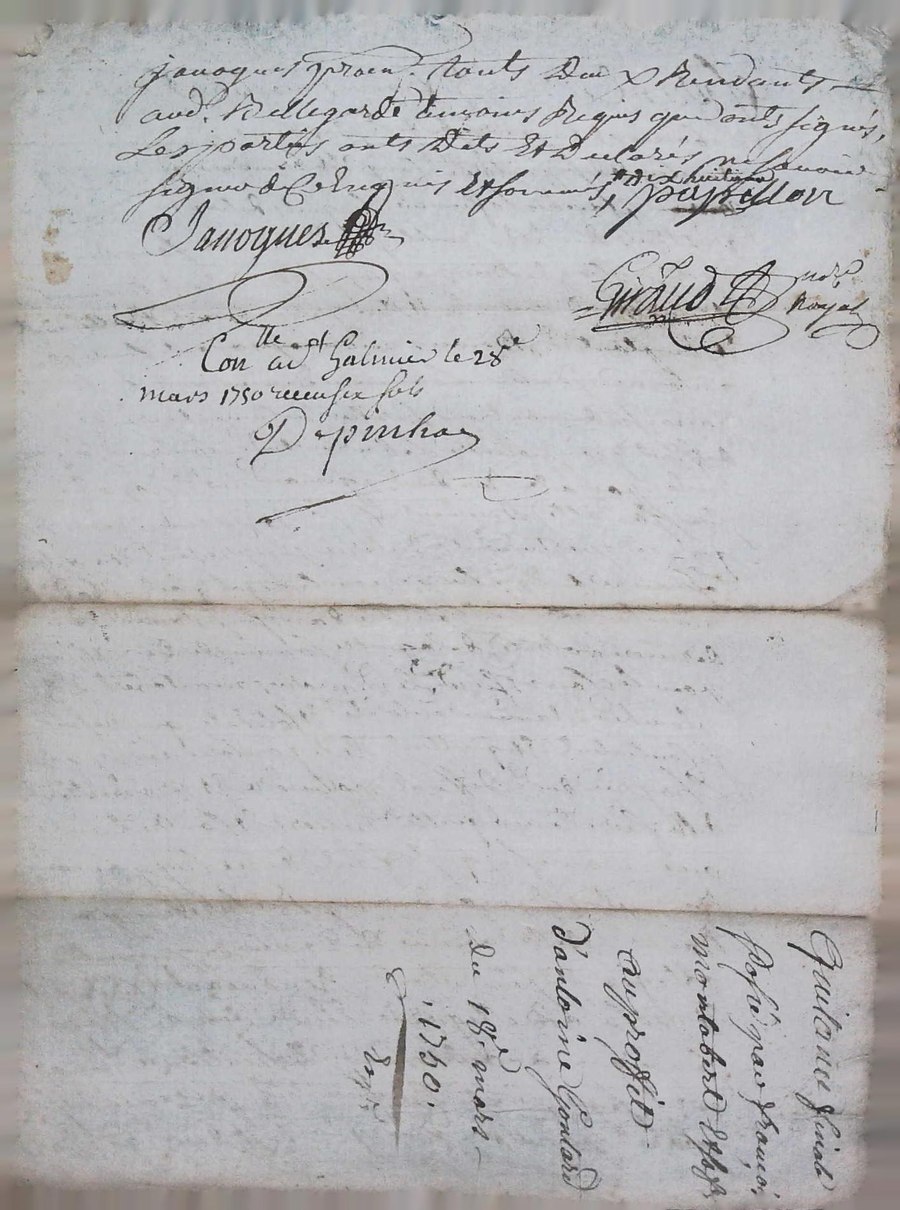 Janoques procur. touts deux Rendants
aud. Bellegarde temoins Requis qui onts signés,
Les parties onts Dits Et Declarés ne scavoir
signer de Ce Enquis Et sommés,
papillon
Janoques
Giraud
No.re
Royal
Con.lle a S.t Galmier le 28.e
mars 1750 receu six sols
Depinhac
Quitance finale
passé par françois
montabert
au proffit
d'antoine Goutard
du 18.e mars
1750.
Exp.é